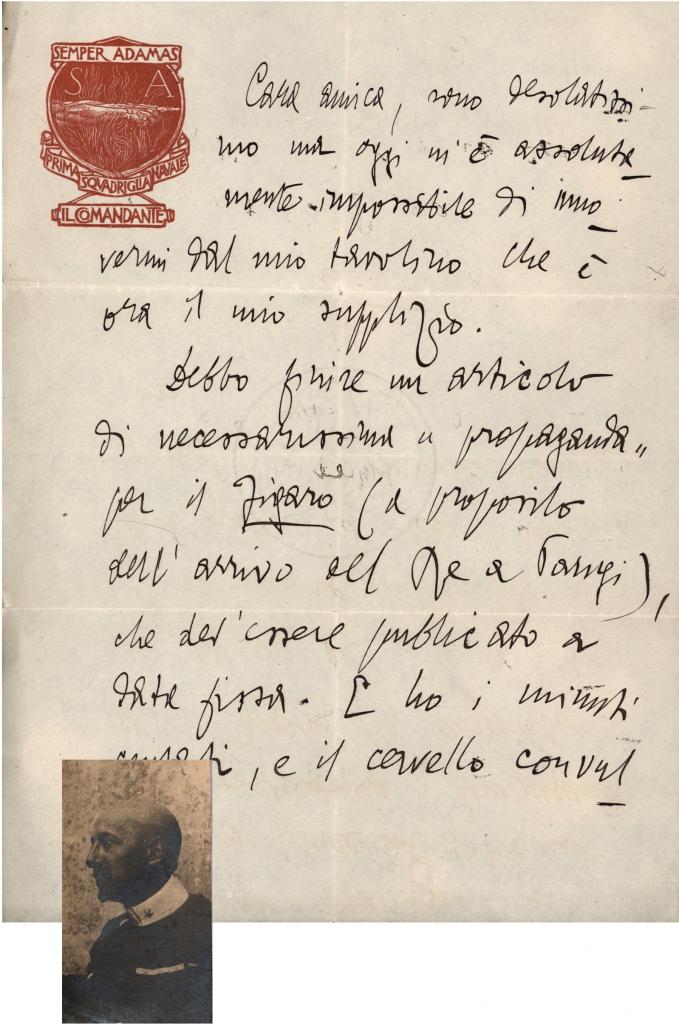 SEMPER ADAMAS
S A
PRIMA SQUADRIGLIA NAVALE
IL COMANDANTE
Cara amica, sono desolatissi-
mo ma oggi m'è assoluta
mente impossibile di muo
vermi dal mio tavolino che è
ora il mio supplizio.
Debbo finire un articolo
di necessarissima „ propaganda „
per il Figaro (a proposito
dell'arrivo del Re a Parigi),
che dev'essere publicato a
data fissa. E ho i minuti
contati, e il cervello convul